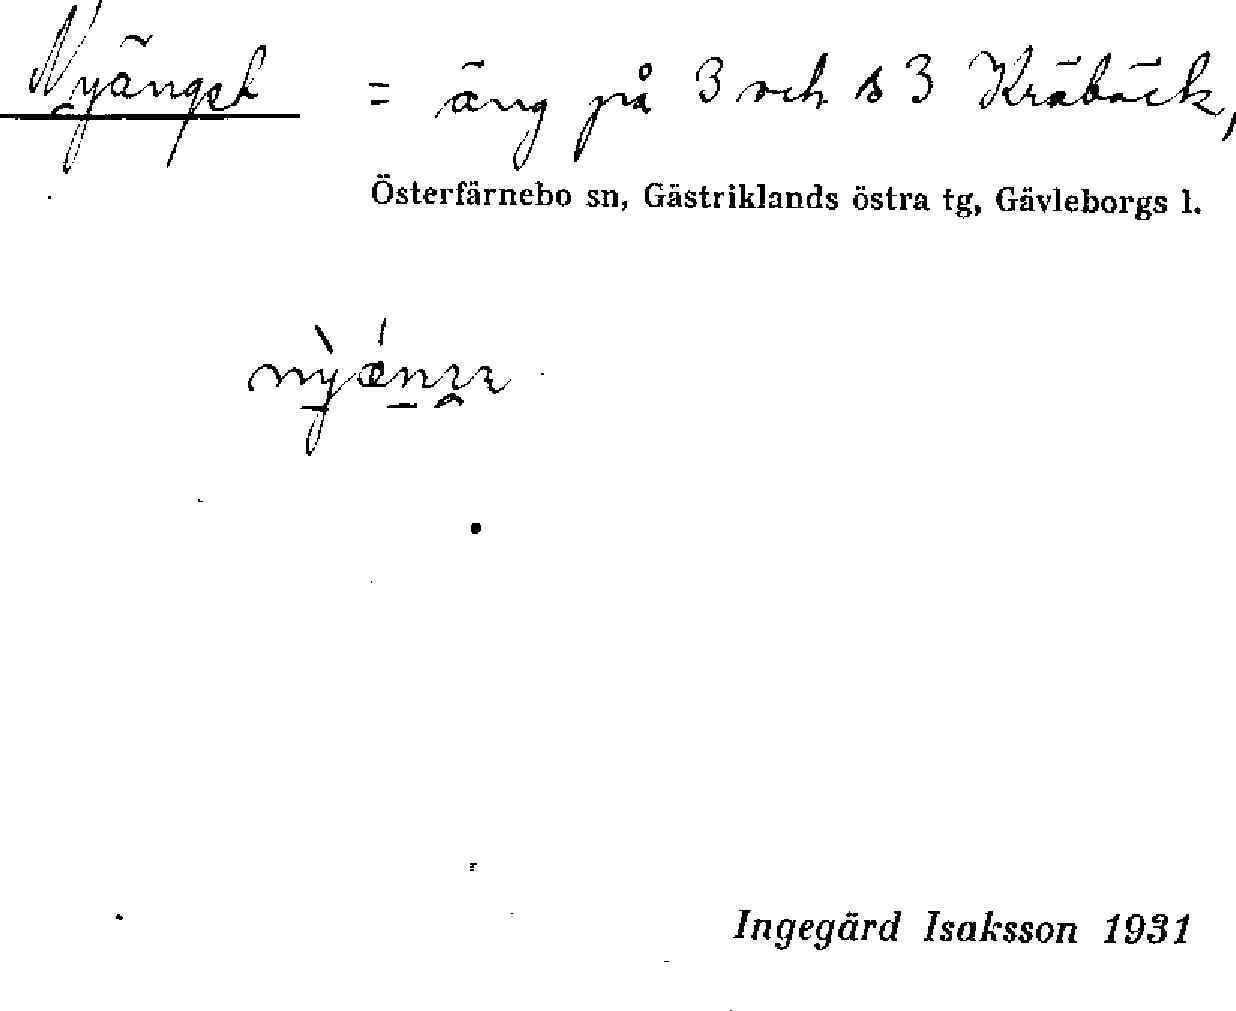 Nyänget = äng på 3 och s 3 Kräbäck,
Österfärnebo sn, Gästriklands östra tg, Gävleborgs l.
Ingegärd Isaksson 1931